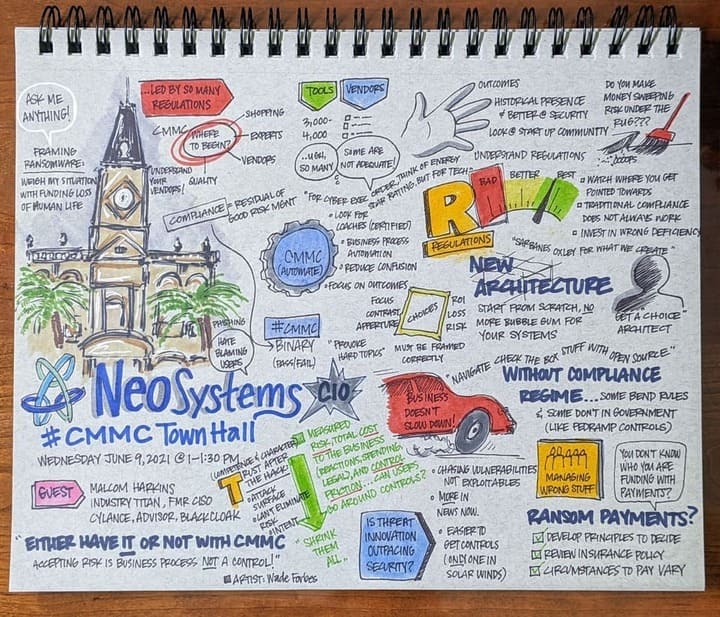 ASK ME
ANYTHING!
FRAMING
RANSOMWARE:
WEIGH MY SITUATION
WITH FUNDING LOSS
OF HUMAN LIFE
...LED BY SO MANY
REGULATIONS
CMMC
WHERE
TO BEGIN?
SHOPPING
EXPERTS
VENDORS
QUALITY
UNDERSTAND
YOUR
VENDORS!
COMPLIANCE = RESIDUAL OF
GOOD RISK MGMT
TOOLS
VENDORS
3,000-
4,000
...UGH,
SO MANY
SOME ARE
NOT ADEQUATE!
OUTCOMES
HISTORICAL PRESENCE
& BETTER @ SECURITY
LOOK @ START UP COMMUNITY
DO YOU MAKE
MONEY SWEEPING
RISK UNDER THE
RUG???
OOPS
UNDERSTAND REGULATIONS
ORDER, THINK OF ENERGY
STAR RATING, BUT FOR TECH
R
BAD
BETTER
BEST
REGULATIONS
WATCH WHERE YOU GET
POINTED TOWARDS
TRADITIONAL COMPLIANCE
DOES NOT ALWAYS WORK
INVEST IN WRONG DEFICIENCY
"SARBANES OXLEY FOR WHAT WE CREATE"
"FOR CYBER EXEC
LOOK FOR
COACHES (CERTIFIED)
BUSINESS PROCESS
AUTOMATION
REDUCE CONFUSION
FOCUS ON OUTCOMES
CMMC
(AUTOMATE)
#CMMC
BINARY
(PASS/FAIL)
"PROVOKE
HARD TOPICS"
FOCUS
CONTRAST
APERTURE
CHOICES
ROI
LOSS
RISK
MUST BE FRAMED
CORRECTLY
NEW
ARCHITECTURE
START FROM SCRATCH, NO
MORE BUBBLE GUM FOR
YOUR SYSTEMS
"GET A CHOICE
ARCHITECT
PHISHING
HATE
BLAMING
USERS
NeoSystems
CIO
#CMMC Town Hall
WEDNESDAY JUNE 9, 2021 @ 1-1:30 PM
GUEST
MALCOM HARKINS
INDUSTRY TITAN, FMR CISO
CYLANCE, ADVISOR, BLACKCLOAK
"EITHER HAVE IT OR NOT WITH CMMC
ACCEPTING RISK IS BUSINESS PROCESS NOT A CONTROL!"
ARTIST: Wade Forbes
(COMPETENCE & CHARACTER)
TRUST AFTER
THE HACK!
ATTACK
SURFACE
CAN'T ELIMINATE
RISK
INTENT
MEASURED
RISK, TOTAL COST
TO THE BUSINESS
(REACTION, SPENDING,
LEGAL) AND CONTROL
FRICTION... CAN USERS
GO AROUND CONTROLS?
"SHRINK
THEM
ALL"
BUSINESS
DOESN'T
SLOW DOWN!
"NAVIGATE CHECK THE BOX STUFF WITH OPEN SOURCE"
WITHOUT COMPLIANCE
REGIME... SOME BEND RULES
& SOME DON'T IN GOVERNMENT
(LIKE FEDRAMP CONTROLS)
IS THREAT
INNOVATION
OUTPACING
SECURITY?
CHASING VULNERABILITIES
NOT EXPLOITABLES
MORE IN
NEWS NOW.
EASIER TO
GET CONTROLS
(ONLY ONE IN
SOLAR WINDS)
MANAGING
WRONG STUFF
YOU DON'T KNOW
WHO YOU ARE
FUNDING WITH
PAYMENTS?
RANSOM PAYMENTS?
DEVELOP PRINCIPLES TO DECIDE
REVIEW INSURANCE POLICY
CIRCUMSTANCES TO PAY VARY